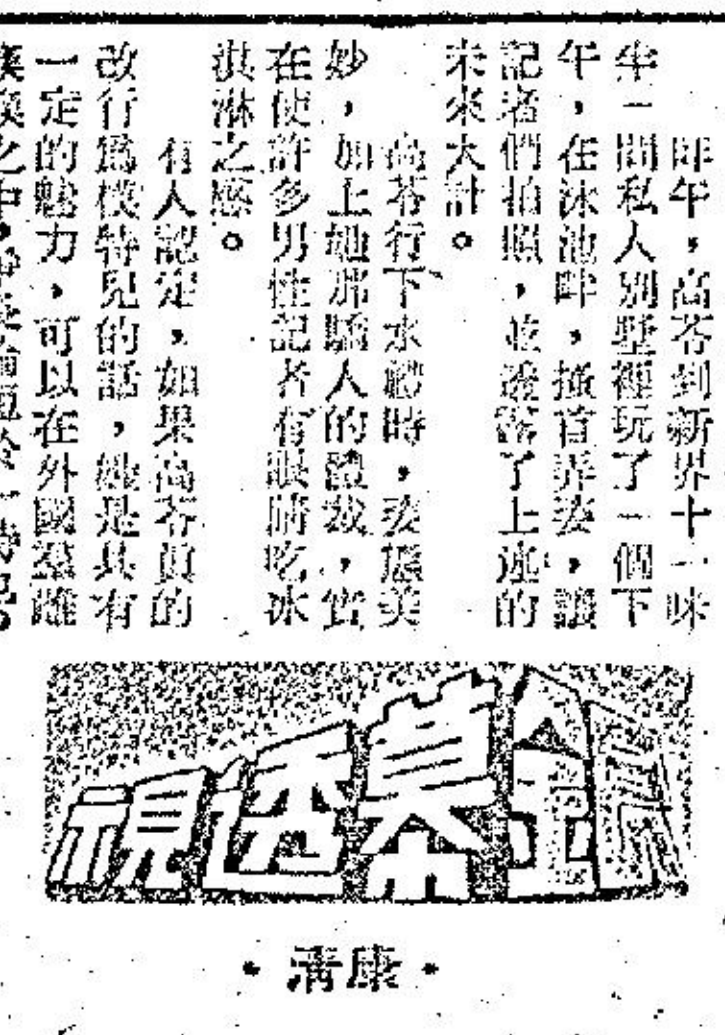 昨午，高苓到新界十一咪
半一間私人別墅裡玩了一個下
午，在泳池畔，搔首弄姿，讓
記者們拍照，並透露了上述的
未來大計。
高苓行下水禮時，姿態美
妙，加上她那驕人的體裁，實
在使許多男性記者有眼睛吃冰
淇淋之感。
有人認定，如果高苓真的
改行爲模特兒的話，她是具有
一定的魅力，可以在外國羣雌
之中，
銀幕透視
·清康·